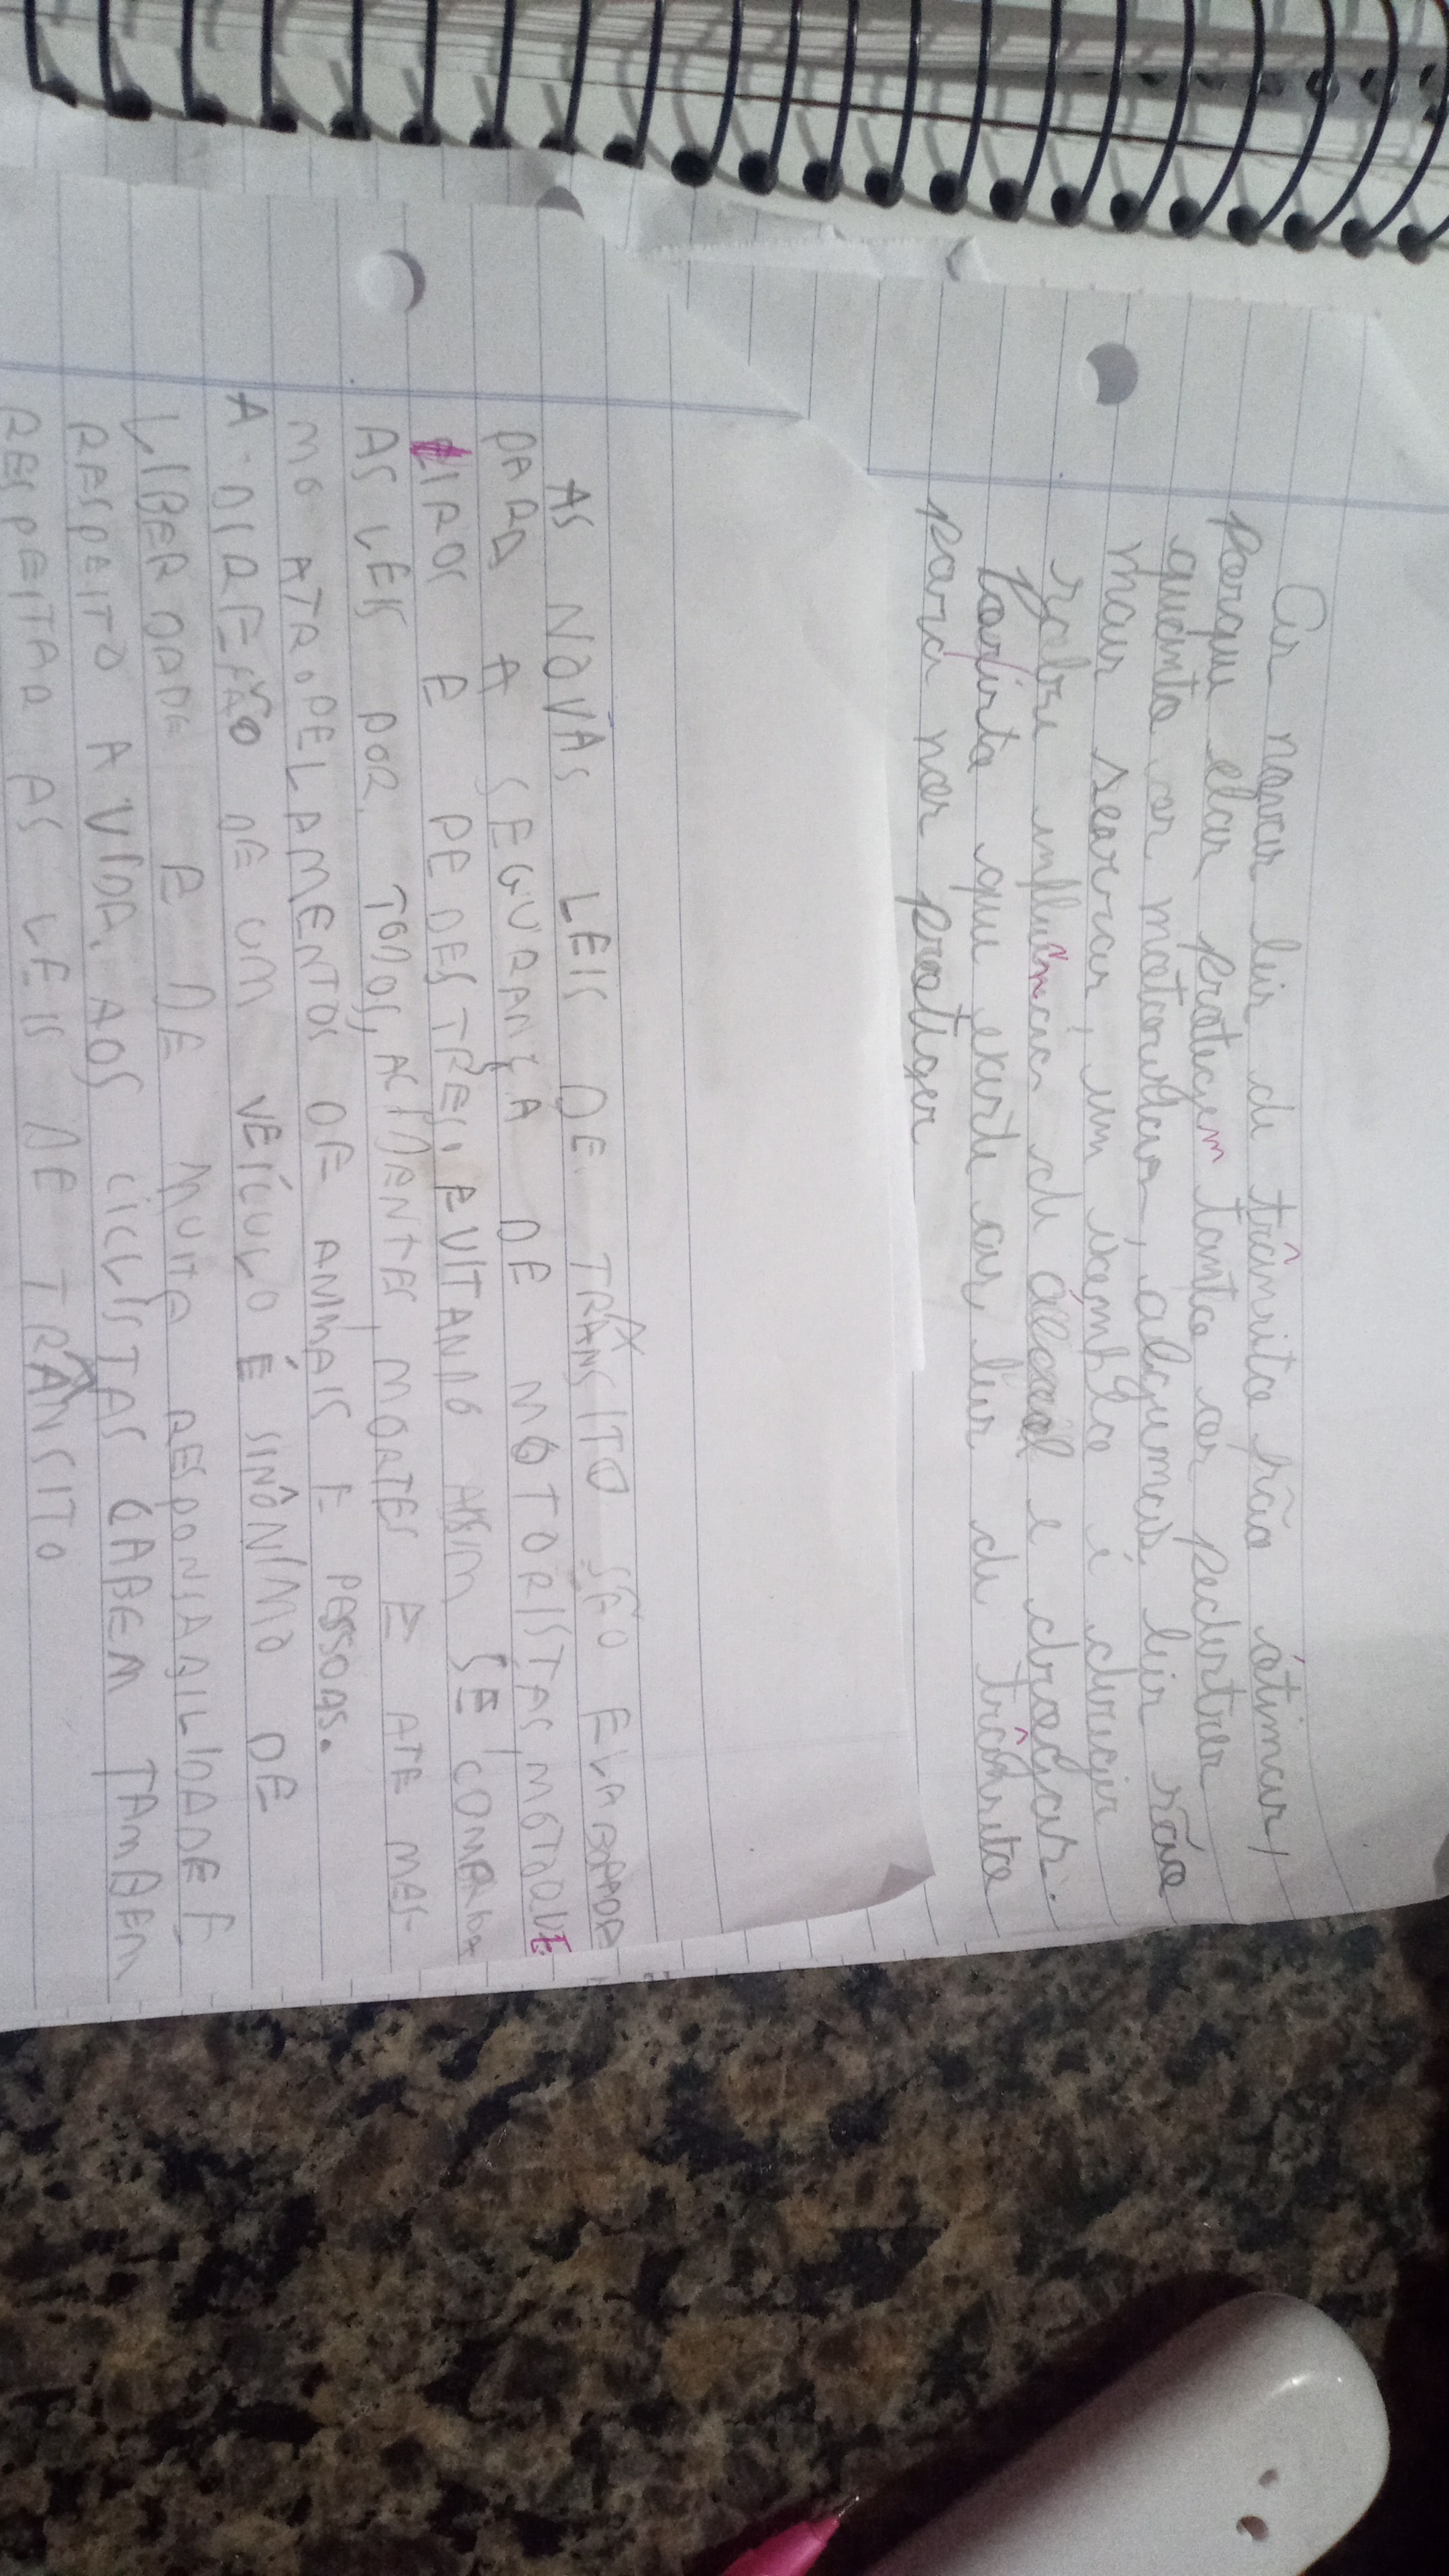 As novas leis de trânsito são ótimas,
porque elas protegem tanto os pedestres
quanto os motoristas, algumas leis são
mais severas, um exemplo é dirigir
sobre influência de álcool e drogas.
que existe as leis de trânsito
para nos proteger
AS NOVAS LEIS DE TRÂNSITO SÃO ELABORADA
PARA A SEGURANÇA DE MOTORISTAS, MOTOQUE
IROS E PEDESTRES, EVITANDO ASSIM SE
AS LEIS POR TODOS, ACIDENTES, MORTES E ATE MES-
MO ATROPELAMENTOS DE ANIMAIS E PESSOAS.
A DIREÇÃO DE UM VEÍCULO É SINÔNIMO DE
LIBERDADE E DE MUITA RESPONSABILIDADE E
RESPEITO A VIDA. AOS CICLISTAS CABEM TAMBEM
RESPEITAR AS LEIS DE TRÂNSITO